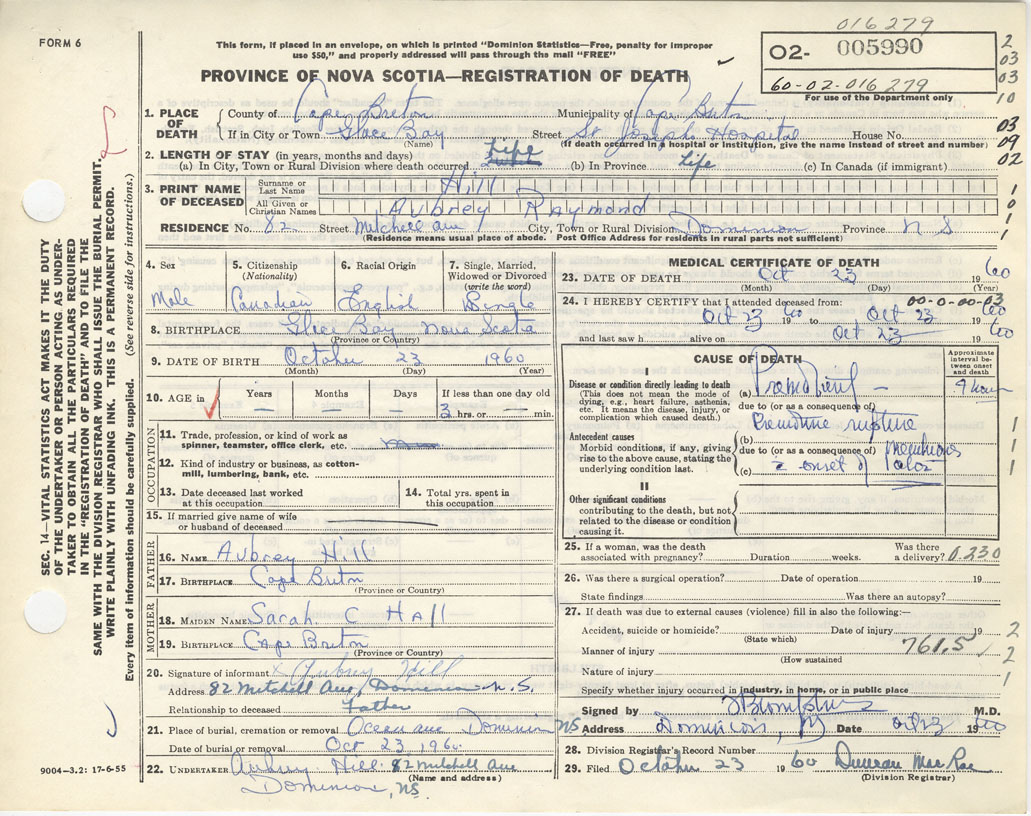 016279
FORM 6
This form, if placed in an envelope, on which is printed "Dominion Statistics—Free, penalty for improper
use $50," and properly addressed will pass through the mail "FREE"
O2- 005990
60-02-016279
For use of the Department only
2
03
03
10
03
09
02
1
0
1
1
PROVINCE OF NOVA SCOTIA—REGISTRATION OF DEATH
1. PLACE OF DEATH
County of Cape Breton Municipality of Cape Breton
If in City or Town Glace Bay Street St Josephs Hospital House No.
(Name) (If death occurred in a hospital or institution, give the name instead of street and number)
2. LENGTH OF STAY (in years, months and days)
(a) In City, Town or Rural Division where death occurred Life (b) In Province Life (c) In Canada (if immigrant)
3. PRINT NAME OF DECEASED
Surname or Last Name Hill
All Given or Christian Names Aubrey Raymond
RESIDENCE No. 82 Street Mitchell Ave City, Town or Rural Division Dominion Province N S
(Residence means usual place of abode. Post Office Address for residents in rural parts not sufficient)
4. Sex 5. Citizenship (Nationality) 6. Racial Origin 7. Single, Married, Widowed or Divorced (write the word)
Male Canadian English Single
8. BIRTHPLACE Glace Bay Nova Scotia
(Province or Country)
9. DATE OF BIRTH October 23 1960
(Month) (Day) (Year)
10. AGE in Years Months Days If less than one day old
— — — 3 hrs. or — min.
OCCUPATION
11. Trade, profession, or kind of work as spinner, teamster, office clerk, etc.
12. Kind of industry or business, as cotton-mill, lumbering, bank, etc.
13. Date deceased last worked at this occupation
14. Total yrs. spent in this occupation
15. If married give name of wife or husband of deceased
FATHER
16. NAME Aubrey Hill
17. BIRTHPLACE Cape Breton
(Province or Country)
MOTHER
18. MAIDEN NAME Sarah C Hall
19. BIRTHPLACE Cape Breton
(Province or Country)
20. Signature of informant x Aubrey Hill
Address 82 Mitchell Ave, Dominion N.S.
Relationship to deceased Father
21. Place of burial, cremation or removal Ocean ave Dominion NS
Date of burial or removal Oct 23, 1960
22. UNDERTAKER Aubrey Hill 82 Mitchell Ave
(Name and address)
Dominion, NS.
MEDICAL CERTIFICATE OF DEATH
23. DATE OF DEATH Oct 23 1960
(Month) (Day) (Year)
24. I HEREBY CERTIFY that I attended deceased from: 00-0-00-03
Oct 23 1960 to Oct 23 1960
and last saw h alive on Oct 23 1960
CAUSE OF DEATH
Approximate interval between onset and death
I
Disease or condition directly leading to death
(This does not mean the mode of dying, e.g., heart failure, asthenia, etc. It means the disease, injury, or complication which caused death.)
(a)
due to (or as a consequence of)
Antecedent causes
Morbid conditions, if any, giving rise to the above cause, stating the underlying condition last.
(b) rupture
due to (or as a consequence of)
(c) onset of
1
1
1
II
Other significant conditions
contributing to the death, but not related to the disease or condition causing it.
25. If a woman, was the death associated with pregnancy? Duration weeks. Was there a delivery? 0.230
26. Was there a surgical operation? Date of operation 19
State findings Was there an autopsy?
27. If death was due to external causes (violence) fill in also the following:—
Accident, suicide or homicide? Date of injury 19
(State which)
Manner of injury 761.5
(How sustained)
Nature of injury
Specify whether injury occurred in industry, in home, or in public place
2
2
1
Signed by M.D.
Address Dominion, Date Oct 23 1960
28. Division Registrar's Record Number
29. Filed October 23 1960 Duncan MacRae
(Division Registrar)
SEC. 14—VITAL STATISTICS ACT MAKES IT THE DUTY
OF THE UNDERTAKER OR PERSON ACTING AS UNDER-
TAKER TO OBTAIN ALL THE PARTICULARS REQUIRED
IN THE "REGISTRATION OF DEATH" AND TO FILE THE
SAME WITH THE DIVISION REGISTRAR WHO SHALL ISSUE THE BURIAL PERMIT.
WRITE PLAINLY WITH UNFADING INK. THIS IS A PERMANENT RECORD.
Every item of information should be carefully supplied. (See reverse side for instructions.)
9004—3.2: 17-6-55